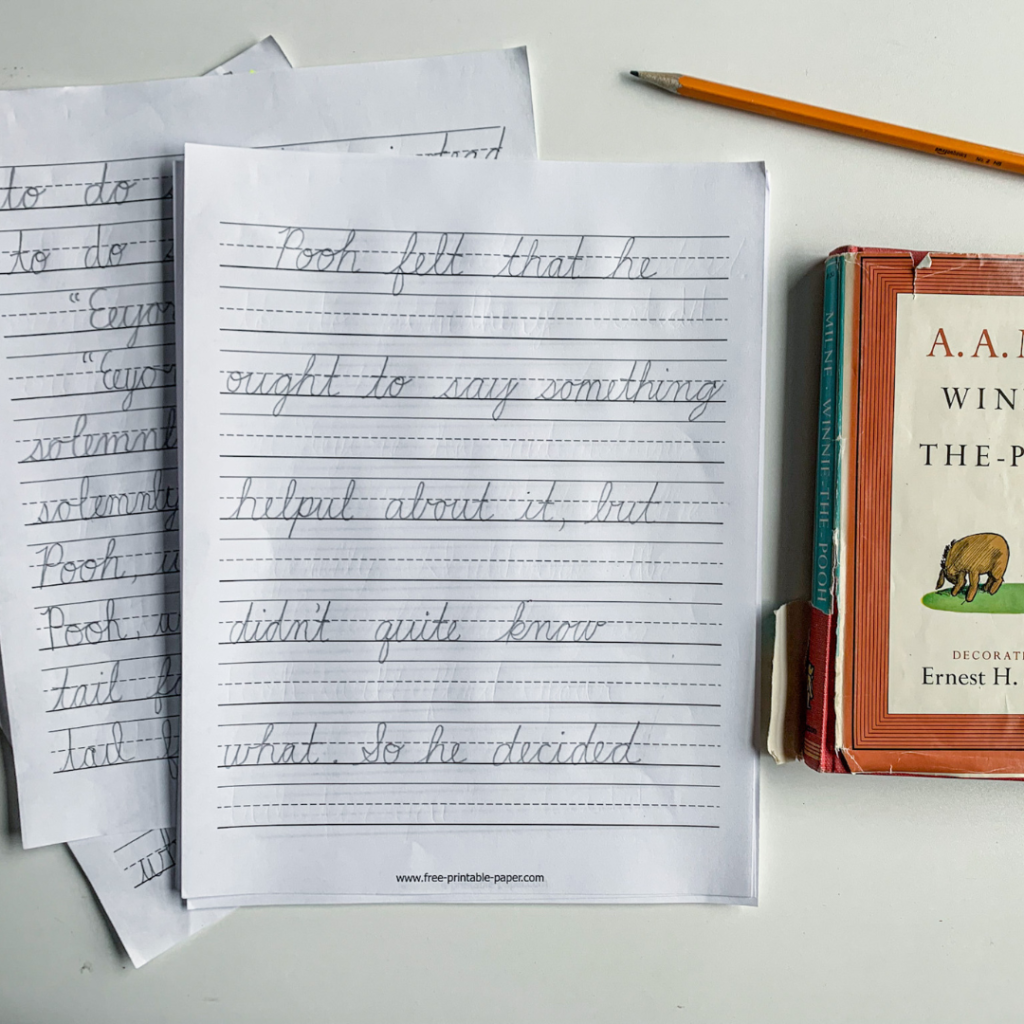 to do
to do
"Eeyor
"Eeyor
solemnl
solemnly
Pooh,
Pooh,
tail
tail
Pooh felt that he
ought to say something
helpul about it, but
didn't quite know
what. So he decided
www.free-printable-paper.com
MILNE · WINNIE-THE-POOH
A. A. M
WIN
THE-P
DECORATE
Ernest H.